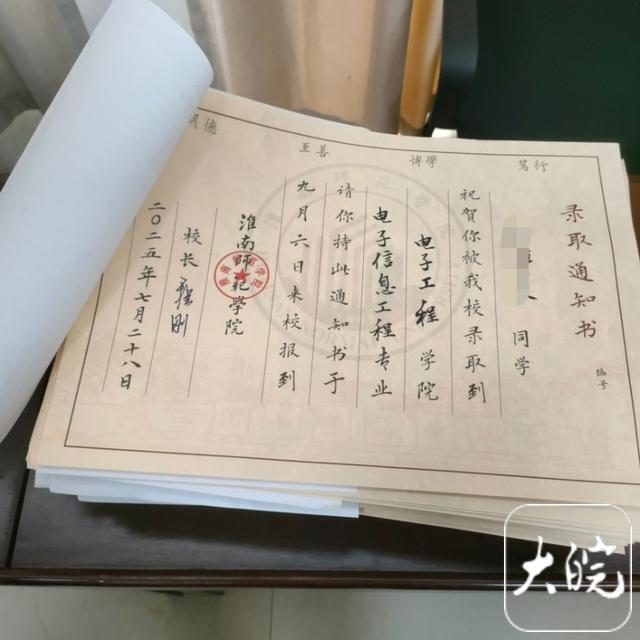 明德
至善
博學
篤行
录取通知书
编号
同学
祝贺你被我校录取到
电子工程学院
电子信息工程专业
请你持此通知书于
九月六日来校报到
淮南师范学院
校长
二〇二五年七月二十八日
大皖